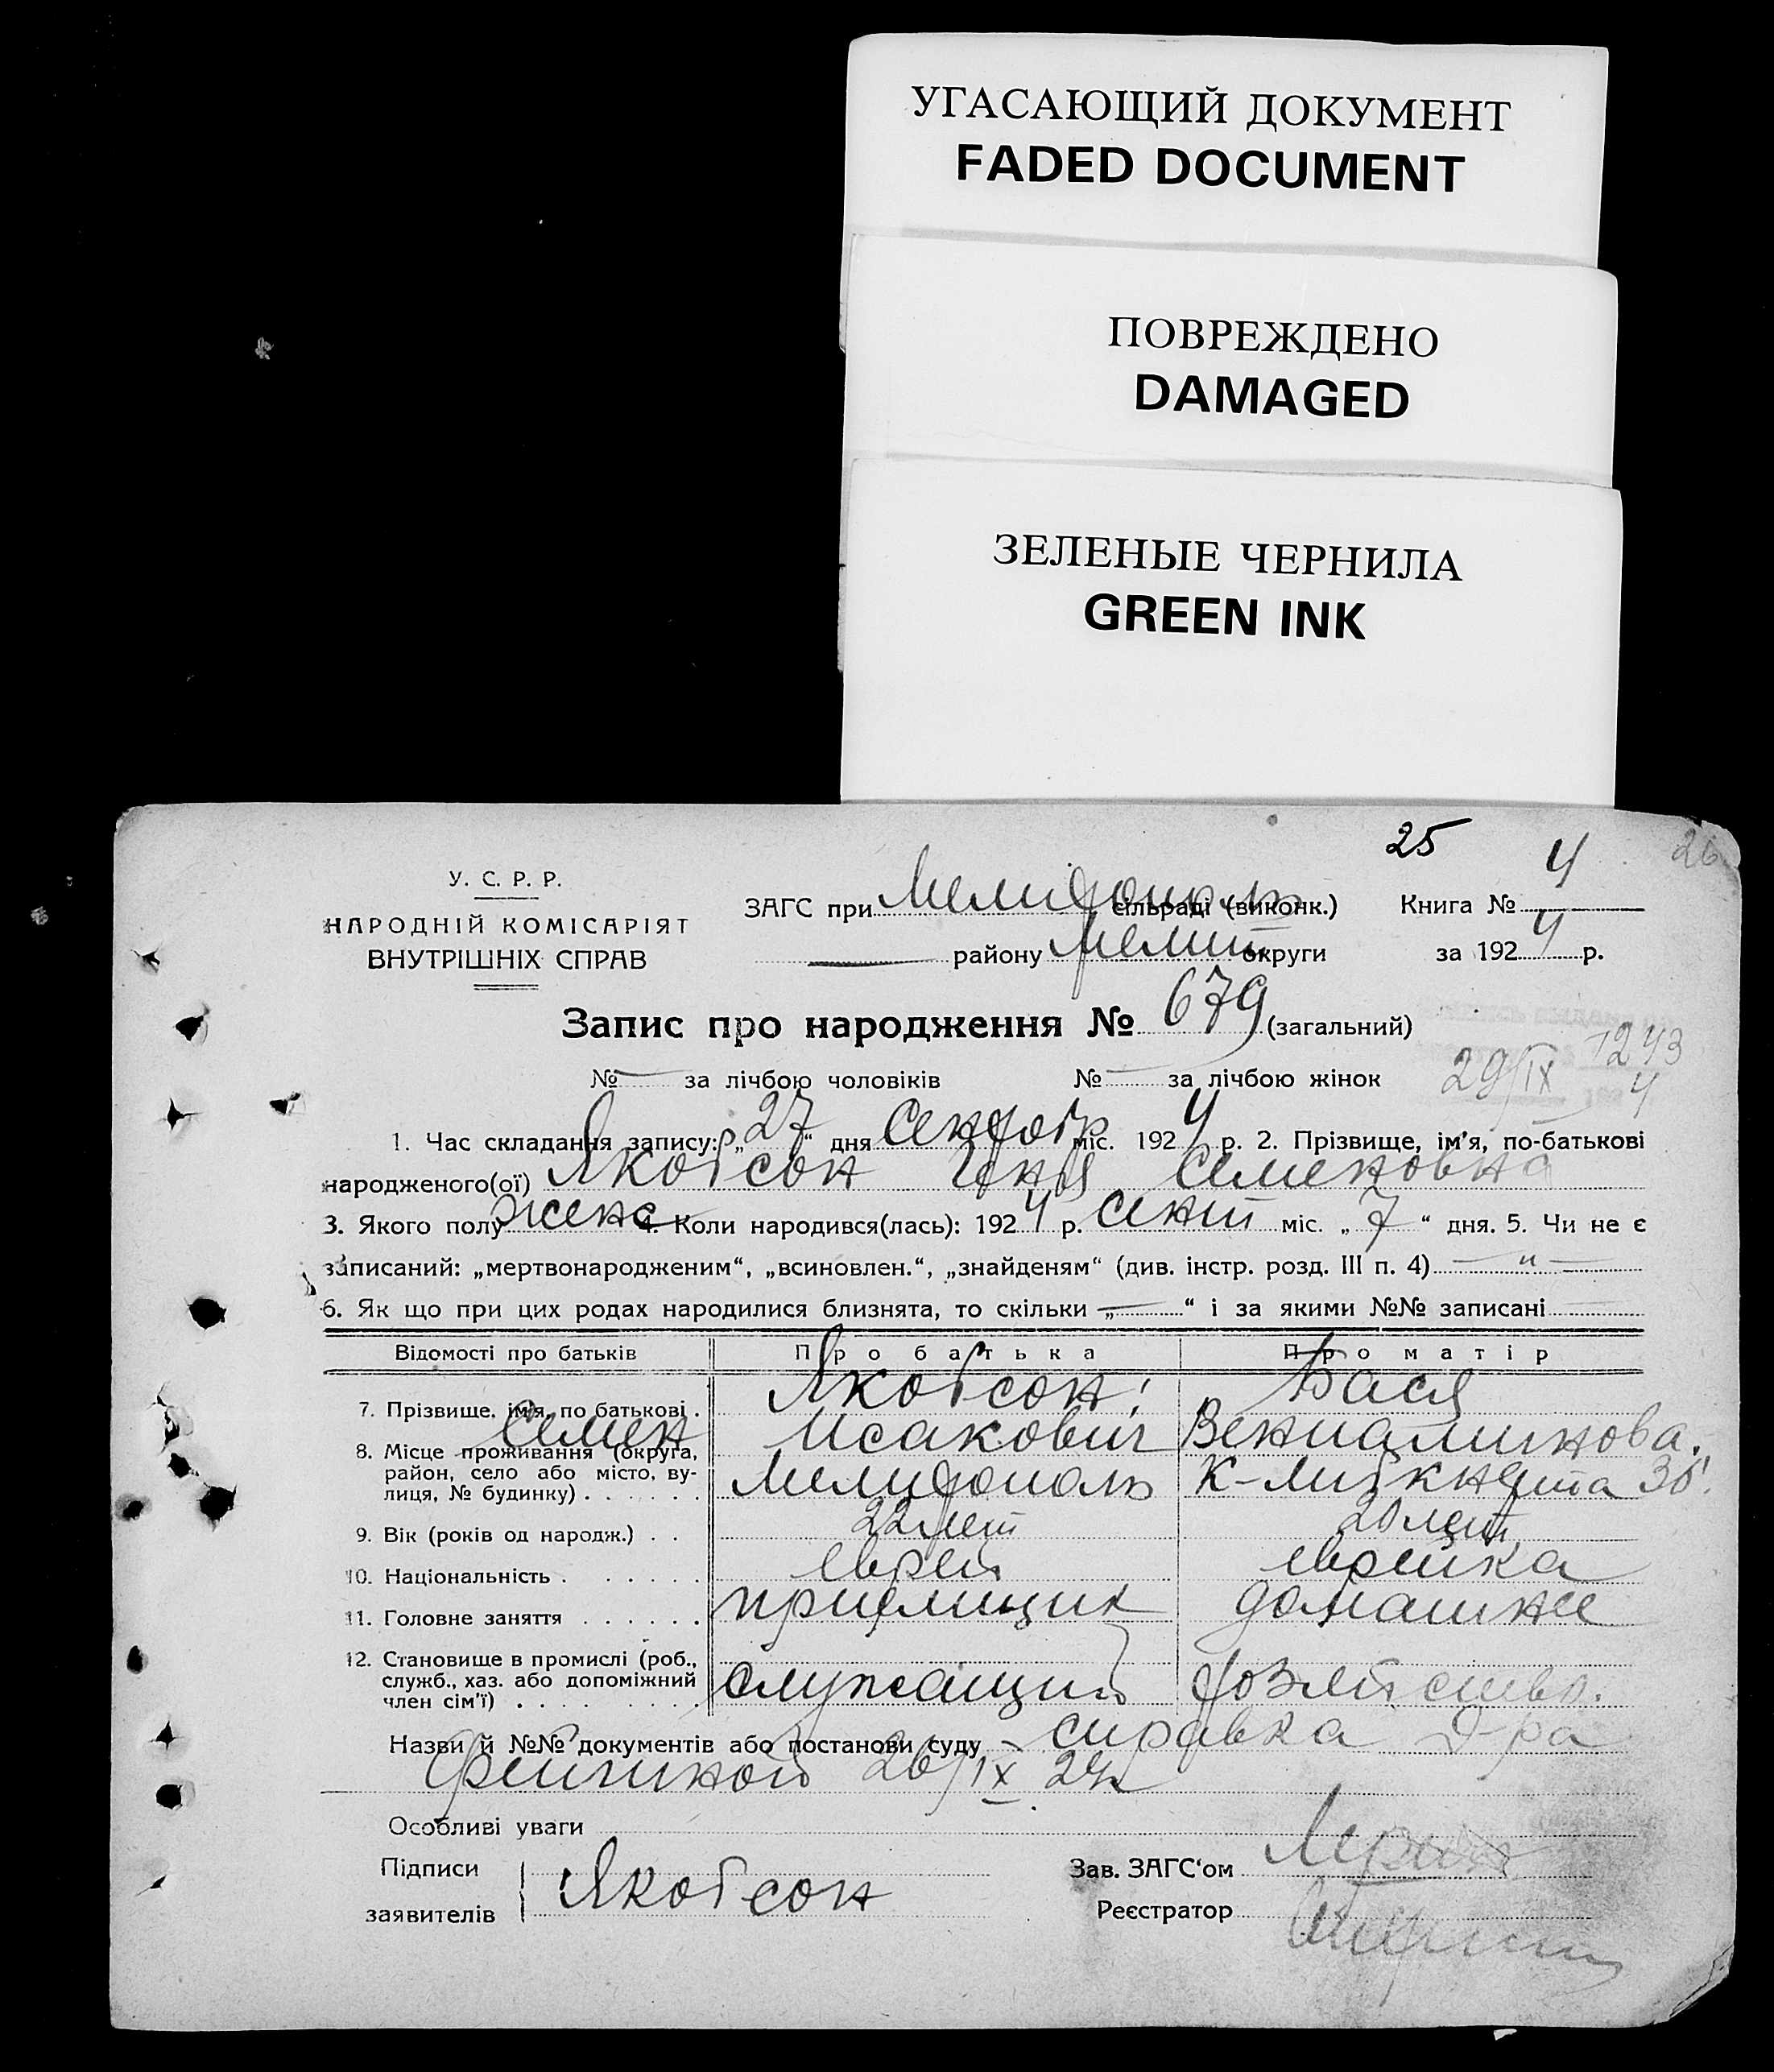 УГАСАЮЩИЙ ДОКУМЕНТ
FADED DOCUMENT
ПОВРЕЖДЕНО
DAMAGED
ЗЕЛЕНЫЕ ЧЕРНИЛА
GREEN INK
25 26
У. С. Р. Р.
НАРОДНІЙ КОМІСАРІЯТ
ВНУТРІШНІХ СПРАВ
ЗАГС при Мелитополь сільраді (виконк.) Книга № 4
району Мелит округи за 1924 р.
Запис про народження № 679 (загальний)
1243
№ — за лічбою чоловіків № — за лічбою жінок 29/IX 4
1. Час складання запису: „27“ дня Сентябр міс. 1924 р. 2. Прізвище, ім'я, по-батькові
народженого(ої) Якобсон Семеновна
3. Якого полу женс 4. Коли народився(лась): 1924 р. сент міс. „7“ дня. 5. Чи не є
записаний: „мертвонародженим“, „всиновлен.“, „знайденям“ (див. інстр. розд. III п. 4) — „ —
6. Як що при цих родах народилися близнята, то скільки „—“ і за якими №№ записані
Відомості про батьків Про батька Про матір
7. Прізвище, ім'я, по батькові . Якобсон Бася
Семен Исакович Вениаминова.
8. Місце проживання (округа, район, село або місто, вулиця, № будинку) . . . . . . Мелитополь К-Либкнехта 35
9. Вік (років од народж.) . . 22 лет 20 лет
10. Національність . . . . . . еврей еврейка
11. Головне заняття . . . . . . приемщик домашнее
12. Становище в промислі (роб., служб., хаз. або допоміжний член сім'ї) . . . . . . . . служащий хозяйство.
Назви й №№ документів або постанови суду – справка д-ра
26/IX 24
Особливі уваги
Підписи
заявителів Якобсон
Зав. ЗАГС'ом
Реєстратор